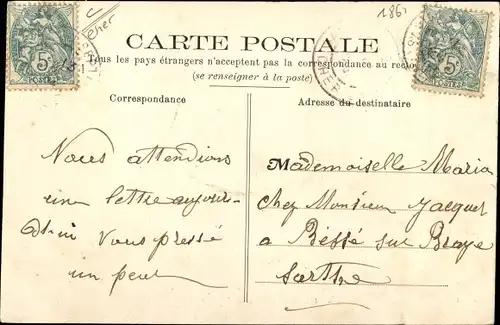 Cher
186
CARTE POSTALE
Tous les pays étrangers n'acceptent pas la correspondance au recto
(se renseigner à la poste)
5c
POSTES
5c
POSTES
Correspondance
Nous attendions
une lettre aujour-
d'hui vous pressé
un peu
Adresse du destinataire
Mademoiselle Maria
chez Monsieur Jacquet
a Bessé sur Braye
Sarthe